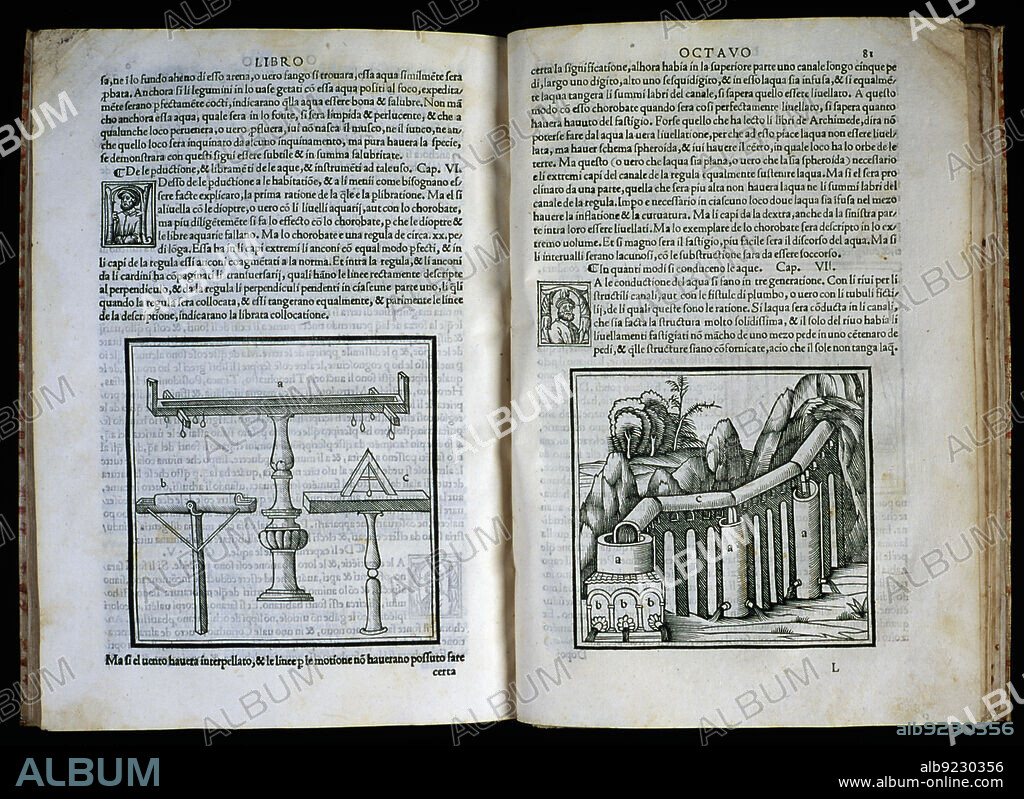 LIBRO
sa, ne ī lo fundo aheno di esso arena, o uero fango si trouara, essa aqua similmēte sera
pbata. Anchora si li legumini in lo uase gettati cō essa aqua positi al foco, expedita/
mēte serano pfectamēte cocti, indicarano qlla aqua essere bona & salubre. Non mā
cho anchora essa aqua, quale sera in lo fonte, si sera limpida & perlucente, & che a
qualunche loco peruenera, o uero pfluera, iui nō nasca il musco, ne il iunco, ne an/
che quello loco sera inquinato da alcuno inquinamento, ma pura hauera la specie,
se demonstrara con questi signi essere subtile & in summa salubritate.
¶ De le pductione, & libramēti de le aque, & instrumēti ad tale uso. Cap. VI.
DEsso de le pductione a le habitatiōe, & a li menii come bisognano es/
sere facte explicaro, la prima ratione de la qle e la pliratione. Ma el si
aliuella cō le dioptre, o uero cō li liuelli aquarii, aut con lo chorobate,
ma piu diligētemēte si fa lo effecto cō lo chorobate, p che le dioptre &
le libre aquarie fallano. Ma lo chorobate e una regula de circa .xx. pe/
di lōga. Essa ha in li capi extremi li anconi cō equal modo pfecti, & in
li capi de la regula essi a ancon coagmētati a la norma. Et intra la regula, & li anconi
da li cardini ha cōpaginati li transuersarii, quali hāno le linee rectamente descripte
al perpendiculo, & da la regula li perpendiculi pendenti in ciascune parte uno, li qli
quando la regula sera collocata, & essi tangerano equalmente, & parimente le linee
de la descriptione, indicarano la librata collocatione.
a
b
c
Ma si el uento hauera interpellato, & le linee p le motione nō hauerano possuto fare
certa
OCTAVO 81
certa la significatione, alhora habia in la superiore parte uno canale longo cinque pe
di, largo uno digito, alto uno sesquidigito, & in esso laqua sia infusa, & si equalmē/
te laqua tangera li summi labri del canale, si sapera quello essere liuellato. A questo
modo cō esso chorobate quando sera cosi perfectamente liuellato, si sapera quanto
hauera hauuto del fastigio. Forse quello che ha lecto li libri de Archimede, dira nō
poterse fare dal aqua la uera liuellatione, per che ad esso piace laqua non essere liuel/
lata, ma hauer schema spheroida, & iui hauere il cētro, in quale loco ha lo orbe de le
terre. Ma questo (o uero che laqua sia plana, o uero che la sia spheroida) necessario
e li extremi capi del canale de la regula equalmente sustenere laqua. Ma si el sera pro
clinato da una parte, quella che sera piu alta non hauera laqua ne li summi labri del
canale de la regula. Impo e necessario in ciascuno loco doue laqua sia ifusa nel mezo
hauere la inflatione & la curuatura. Ma li capi da la dextra, anche da la sinistra par/
te intra loro essere liuellati. Ma lo exemplare de lo chorobate sera descripto in lo ex/
tremo uolume. Et si magno sera il fastigio, piu facile sera il discorso del aqua. Ma si
li interualli serano lacunosi, cō le substructione sara da essere soccorso.
¶ In quanti modi si conduceno le aque. Cap. VII.
A le conductione del aqua si fano in tre generatione. Con li riui per li
structili canali, aut con le fistule di plumbo, o uero con li tubuli ficti/
li, de li quali queste sono le ratione. Si laqua sera cōducta in li canali,
che sia facta la structura molto solidissima, & il solo del riuo habia li
liuellamenti fastigiati nō mācho de uno mezo pede in uno cētenaro de
pedi, & qlle structure siano cōfornicate, acio che il sole non tanga laq.
c
a
a
a
b b b
L
ALBUM
alb9230356
alb9230356
www.album-online.com